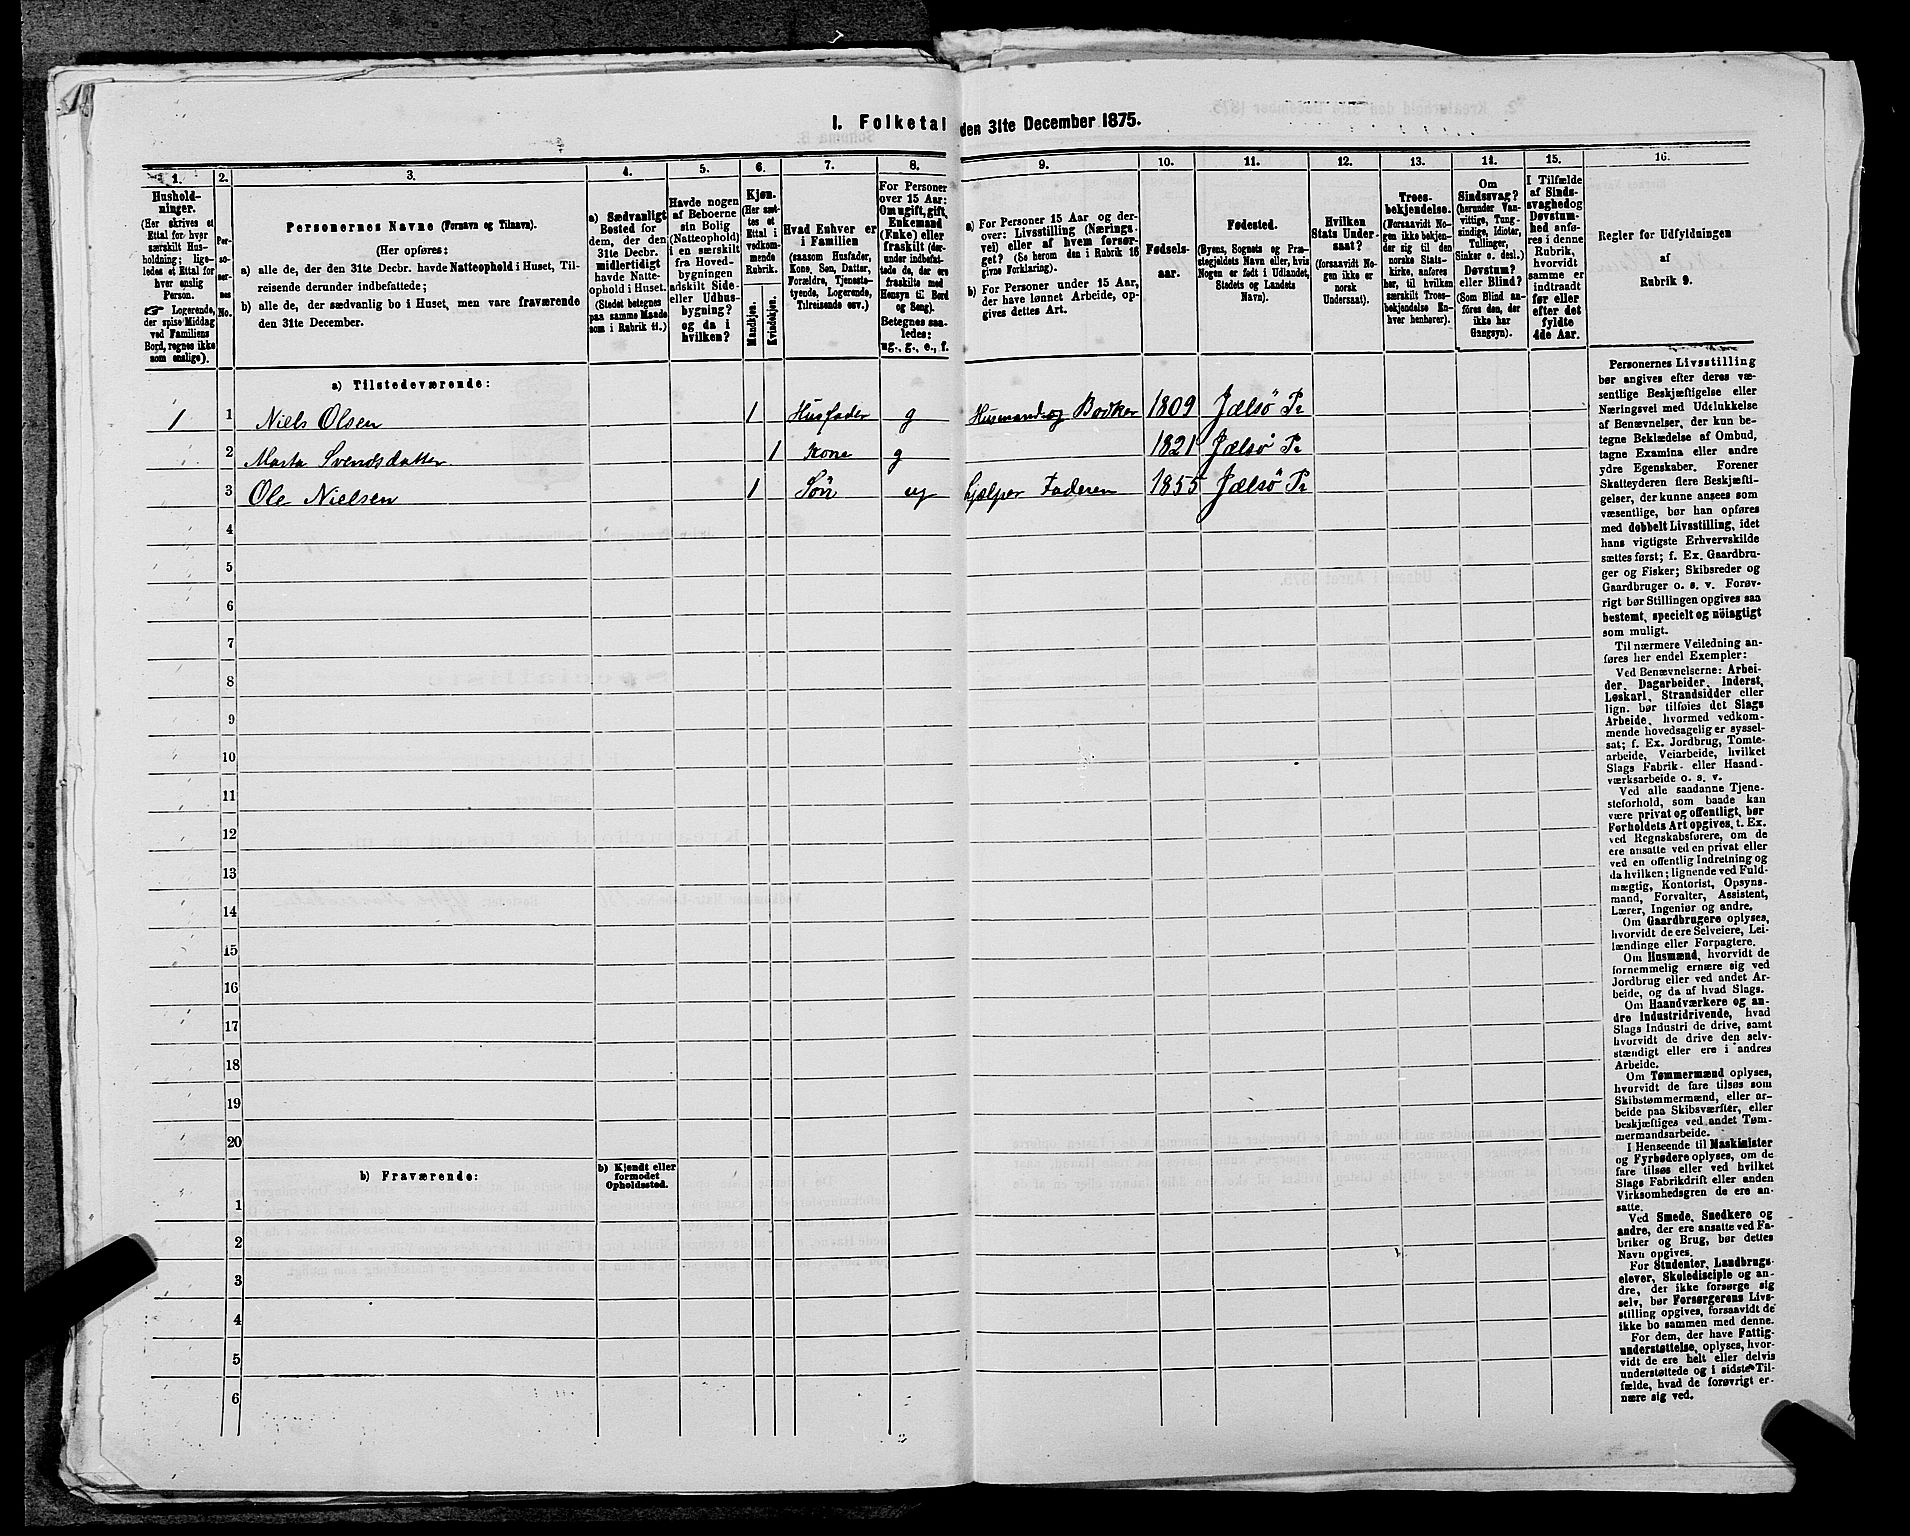 I. Folketal den 31te December 1875.
1.
2.
3.
4.
5.
6.
7.
8.
9.
10.
11.
12.
13.
14.
15.
16.
Hushold-
ninger.
(Her skrives et
Ettal for hver
særskilt Hus-
holdning; lige-
ledes et Ettal for
hver enslig
Person.
☞ Logerende,
der spise Middag
ved Familiens
Bord, regnes ikke
som enslige).
Per-
so-
ner-
nes
No.
Personernes Navne (Fornavn og Tilnavn).
(Her opføres:
a) alle de, der den 31te Decbr. havde Natteophold i Huset, Til-
reisende derunder indbefattede;
b) alle de, der sædvanlig bo i Huset, men vare fraværende
den 31te December.
a) Sædvanligt
Bosted for
dem, der den
31te Decbr.
midlertidigt
havde Natte-
ophold i Huset.
(Stedet betegnes
paa samme Maade
som i Rubrik 11.)
Havde nogen
af Beboerne
sin Bolig
(Natteophold)
i en særskilt
fra Hoved-
bygningen
adskilt Side-
eller Udhus-
bygning?
og da i
hvilken?
Kjøn.
(Her sæt-
tes et
Ettal i
vedkom-
mende
Rubrik.
Mandkjøn.
Kvindekjøn.
Hvad Enhver er
i Familien
(saasom Husfader,
Kone, Søn, Datter,
Forældre, Tjeneste-
tyende, Logerende,
Tilreisende osv.)
For Personer
over 15 Aar:
Om ugift, gift,
Enkemand
(Enke) eller
fraskilt (der-
under indbefat-
tede de, der ere
fraskilte med
Hensyn til Bord
og Seng).
Betegnes saa-
ledes:
ug., g., e., f.
a) For Personer 15 Aar og der-
over: Livsstilling (Nærings-
vei) eller af hvem forsør-
get? (Se herom den i Rubrik 16
givne Forklaring).
b) For Personer under 15 Aar,
der have lønnet Arbeide, op-
gives dettes Art.
Fødsels-
aar.
Fødested.
(Byens, Sognets og Præ-
stegjeldets Navn eller, hvis
Nogen er født i Udlandet,
Stedets og Landets
Navn).
Hvilken
Stats Under-
saat?
(forsaavidt No-
gen ikke er
norsk
Undersaat).
Troes-
bekjendelse.
(Forsaavidt No-
gen ikke bekjen-
der sig til den
norske Stats-
kirke, anføres
her, til hvilken
særskilt Troes-
bekjendelse En-
hver henhører).
Om
Sindssvag?
(herunder Van-
vittige, Tung-
sindige, Idioter,
Tullinger,
Sinker o. desl.)
Døvstum?
eller Blind?
(Som Blind an-
føres den, der
ikke har
Gangsyn).
I Tilfælde
af Sinds-
svaghed og
Døvstum-
hed anfø-
res i denne
Rubrik,
hvorvidt
samme er
indtraadt
før eller
efter det
fyldte
4de Aar.
Regler for Udfyldningen
af
Rubrik 9.
a) Tilstedeværende:
1 1 Niels Olsen 1 Husfader g Husmand og Bødker 1809 Jælsø Pr
2 Marta Svendsdatter 1 Kone g 1821 Jælsø Pr
3 Ole Nielsen 1 Søn ug hjælper Faderen 1855 Jælsø Pr
4
5
6
7
8
9
10
11
12
13
14
15
16
17
18
19
20
b) Fraværende:
b) Kjendt eller
formodet
Opholdssted.
1
2
3
4
5
6
Personernes Livsstilling
bør angives efter deres væ-
sentlige Beskjæftigelse eller
Næringsvei med Udelukkelse
af Benævnelser, der kun be-
tegne Beklædelse af Ombud,
tagne Examina eller andre
ydre Egenskaber. Forener
Skatteyderen flere Beskjæfti-
gelser, der kunne ansees som
væsentlige, bør han opføres
med dobbelt Livsstilling, idet
hans vigtigste Erhvervskilde
sættes først; f. Ex. Gaardbru-
ger og Fisker; Skibsreder og
Gaardbruger o. s. v. Forøv-
rigt bør Stillingen opgives saa
bestemt, specielt og nøiagtigt
som muligt.
Til nærmere Veiledning an-
føres her endel Exempler:
Ved Benævnelserne: Arbei-
der, Dagarbeider, Inderst,
Løskarl, Strandsidder eller
lign. bør tilføies det Slags
Arbeide, hvormed vedkom-
mende hovedsagelig er syssel-
sat; f. Ex. Jordbrug, Tomte-
arbeide, Veiarbeide, hvilket
Slags Fabrik- eller Haand-
værksarbeide o. s. v.
Ved alle saadanne Tjene-
steforhold, som baade kan
være privat og offentligt, bør
Forholdets Art opgives, t. Ex.
ved Regnskabsførere, om de
ere ansatte ved en privat eller
ved en offentlig Indretning og
da hvilken; lignende ved Fuld-
mægtig, Kontorist, Opsyns-
mand, Forvalter, Assistent,
Lærer, Ingeniør og andre.
Om Gaardbrugere oplyses,
hvorvidt de ere Selveiere, Lei-
lændinge eller Forpagtere.
Om Husmænd, hvorvidt de
fornemmelig ernære sig ved
Jordbrug eller ved andet Ar-
beide, og da af hvad Slags.
Om Haandværkere og an-
dre Industridrivende, hvad
Slags Industri de drive, samt
hvorvidt de drive den selv-
stændigt eller ere i andres
Arbeide.
Om Tømmermænd oplyses,
hvorvidt de fare tilsøs som
Skibstømmermænd, eller ar-
beide paa Skibsværfter, eller
beskjæftiges ved andet Tøm-
mermandsarbeide.
I Henseende til Maskinister
og Fyrbødere oplyses, om de
fare tilsøs eller ved hvilket
Slags Fabrikdrift eller anden
Virksomhedsgren de ere an-
satte.
Ved Smede, Snedkere og
andre, der ere ansatte ved Fa-
briker og Brug, bør dettes
Navn opgives.
For Studenter, Landbrugs-
elever, Skoledisciple og an-
dre, der ikke forsørge sig
selv, bør Forsørgerens Livs-
stilling opgives, forsaavidt de
ikke bo sammen med denne.
For dem, der have Fattig-
understøttelse, oplyses, hvor-
vidt de ere helt eller delvis
understøttede og i sidste Til-
fælde, hvad de forøvrigt er-
nære sig ved.